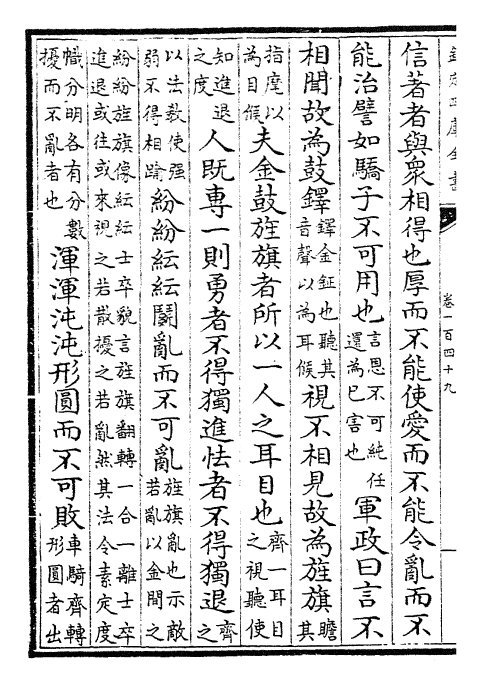 欽定四庫全書
卷一百四十九
一
信著者與衆相得也厚而不能使愛而不能令亂而不
能治譬如驕子不可用也言恩不可純任還為已害也軍政曰言不
相聞故為鼓鐸鐸金鉦也聽其音聲以為耳候視不相見故為旌旗瞻其
指麾以為目候夫金鼓旌旗者所以一人之耳目也齊一耳目之視聽使
知進退之度人既專一則勇者不得獨進怯者不得獨退齊之
以法教使强弱不得相踰紛紛紜紜鬬亂而不可亂旌旗亂也示敵若亂以金間之
紛紛旌旗像紜紜士卒貌言旌旗翻轉一合一離士卒進退或往或來視之若散擾之若亂然其法令素定度
幟分明各有分數擾而不亂者也渾渾沌沌形圓而不可敗車騎齊轉形圓者出